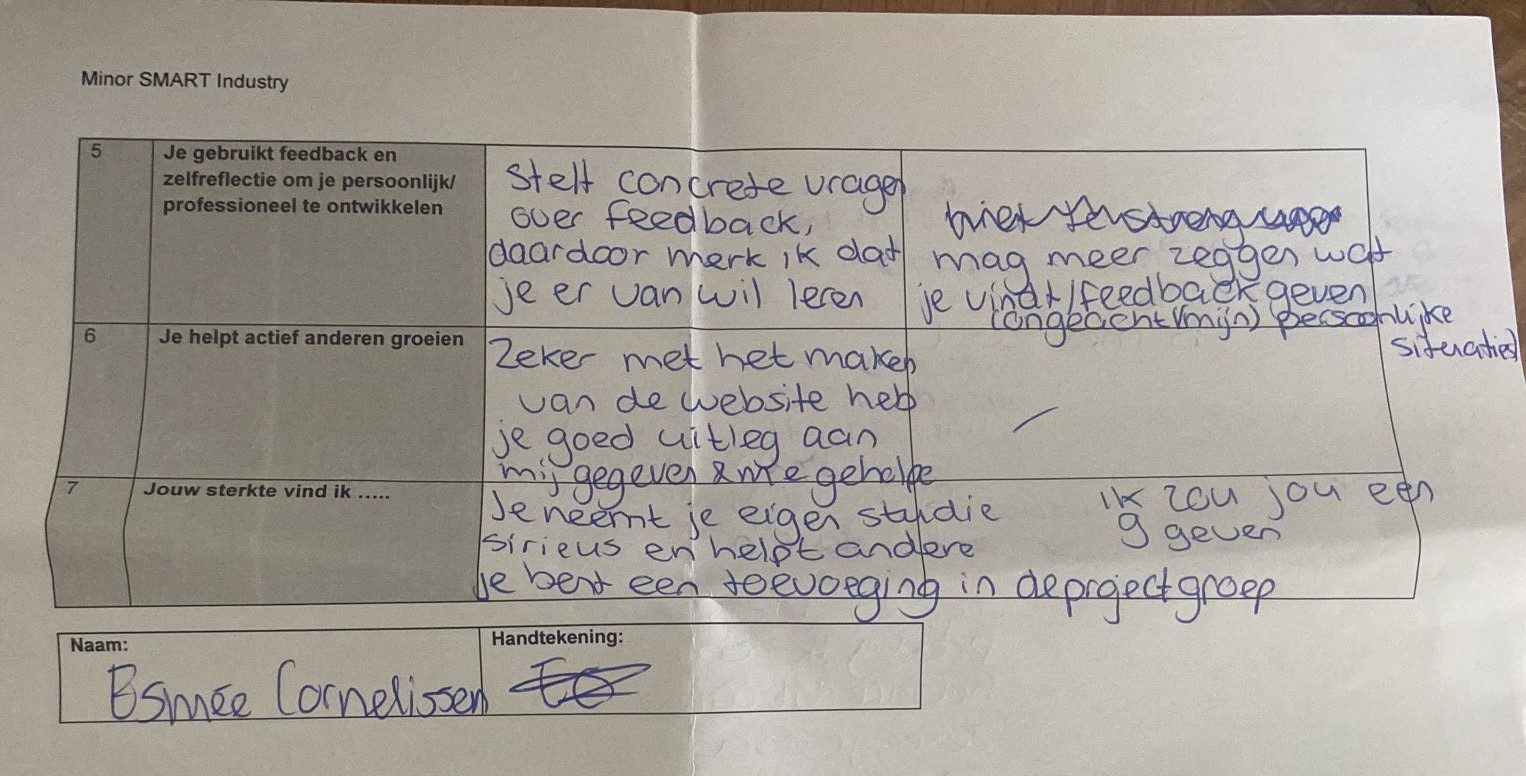 Minor SMART Industry
5
Je gebruikt feedback en
zelfreflectie om je persoonlijk/
professioneel te ontwikkelen
Stelt concrete vragen
over feedback,
daardoor merk ik dat
je er van wil leren
mag meer zeggen wat
je vindt/feedback geven
(ongeacht (mijn) persoonlijke
situaties)
6
Je helpt actief anderen groeien
Zeker met het maken
van de website heb
je goed uitleg aan
mij gegeven & me geholpe
7
Jouw sterkte vind ik .....
Je neemt je eigen studie
sirieus en helpt andere
je bent een toevoeging in de projectgroep
ik zou jou een
9 geven
Naam:
Esmée Cornelissen
Handtekening: